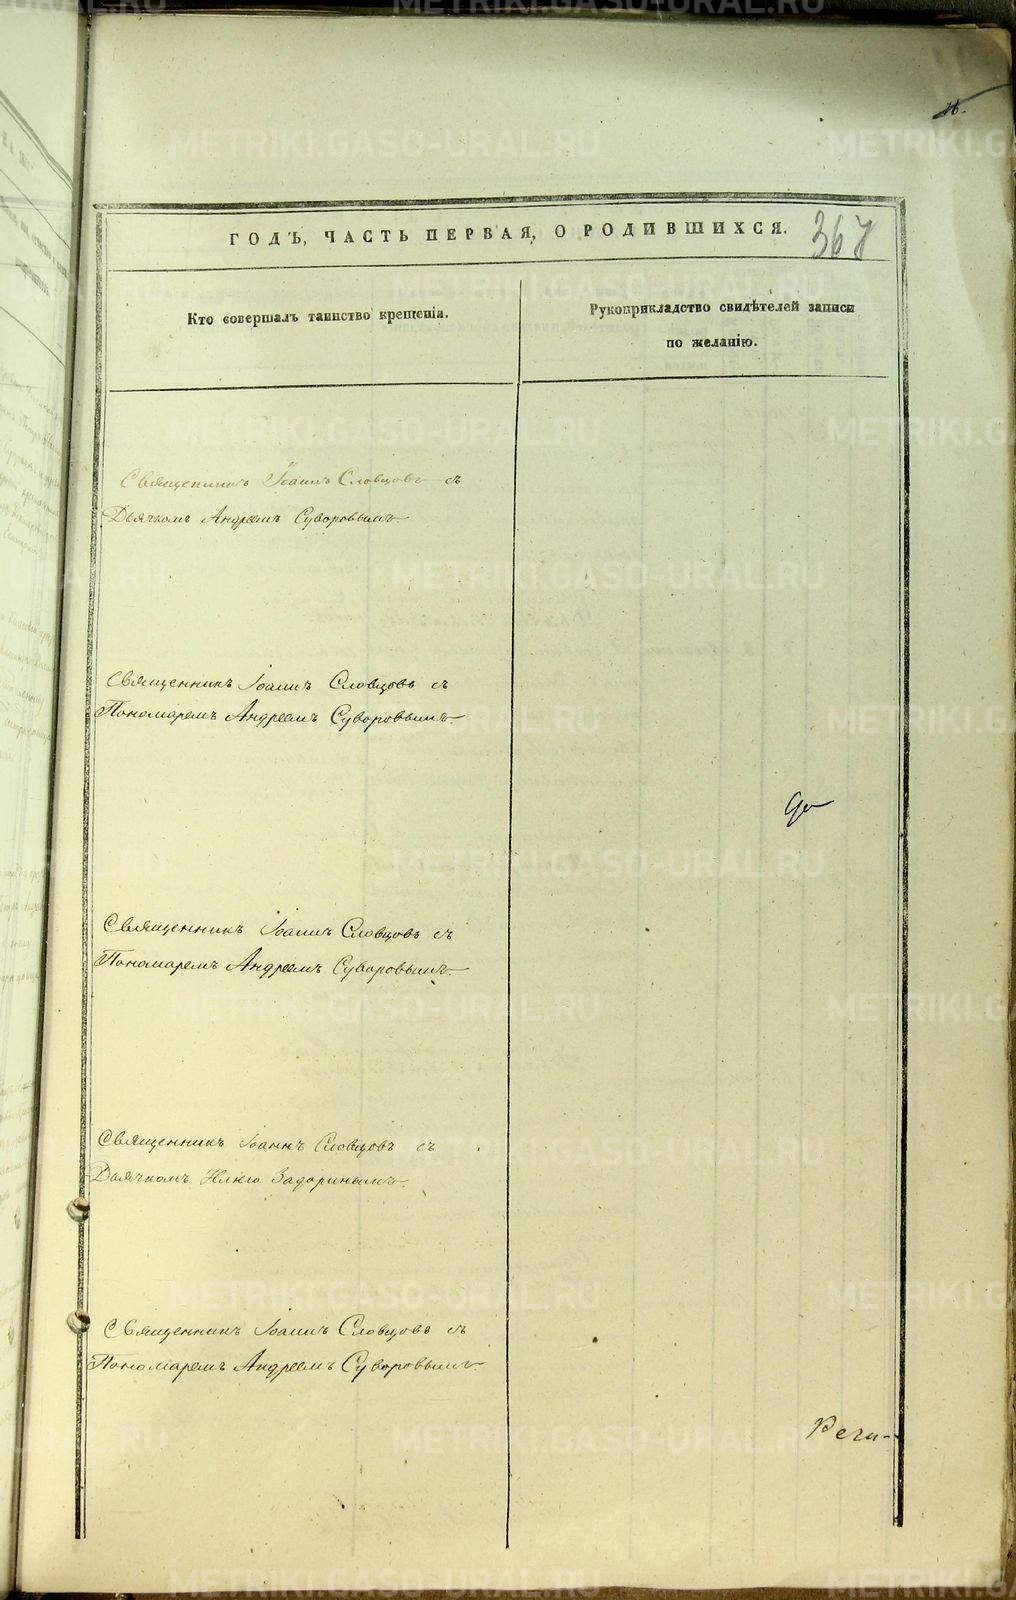 16.
ГОДЪ, ЧАСТЬ ПЕРВАЯ, О РОДИВШИХСЯ. 367
Кто совершалъ таинство крещенія.
Рукоприкладство свидѣтелей записи
по желанію.
Священникъ Іоаннъ Словцовъ съ
Дьячкомъ Андреемъ Суворовымъ
Священникъ Іоаннъ Словцовъ съ
Пономаремъ Андреемъ Суворовымъ.
до
Священникъ Іоаннъ Словцовъ съ
Пономаремъ Андреемъ Суворовымъ.
Священникъ Іоаннъ Словцовъ съ
Дьячкомъ Ильею Задоринымъ.
Священникъ Іоаннъ Словцовъ съ
Пономаремъ Андреемъ Суворовымъ.
METRIKI.GASO-URAL.RU